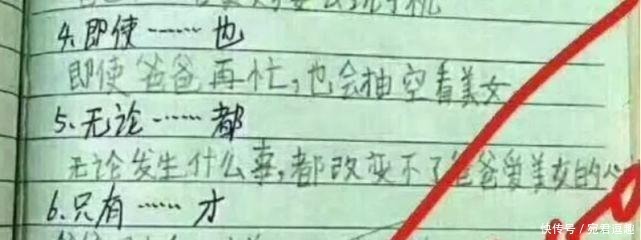 4.即使……也
即使爸爸再忙，也会抽空看美女
5.无论……都
无论发生什么事，都改变不了爸爸爱美女的心
6.只有……才
快传号/宛君逗趣